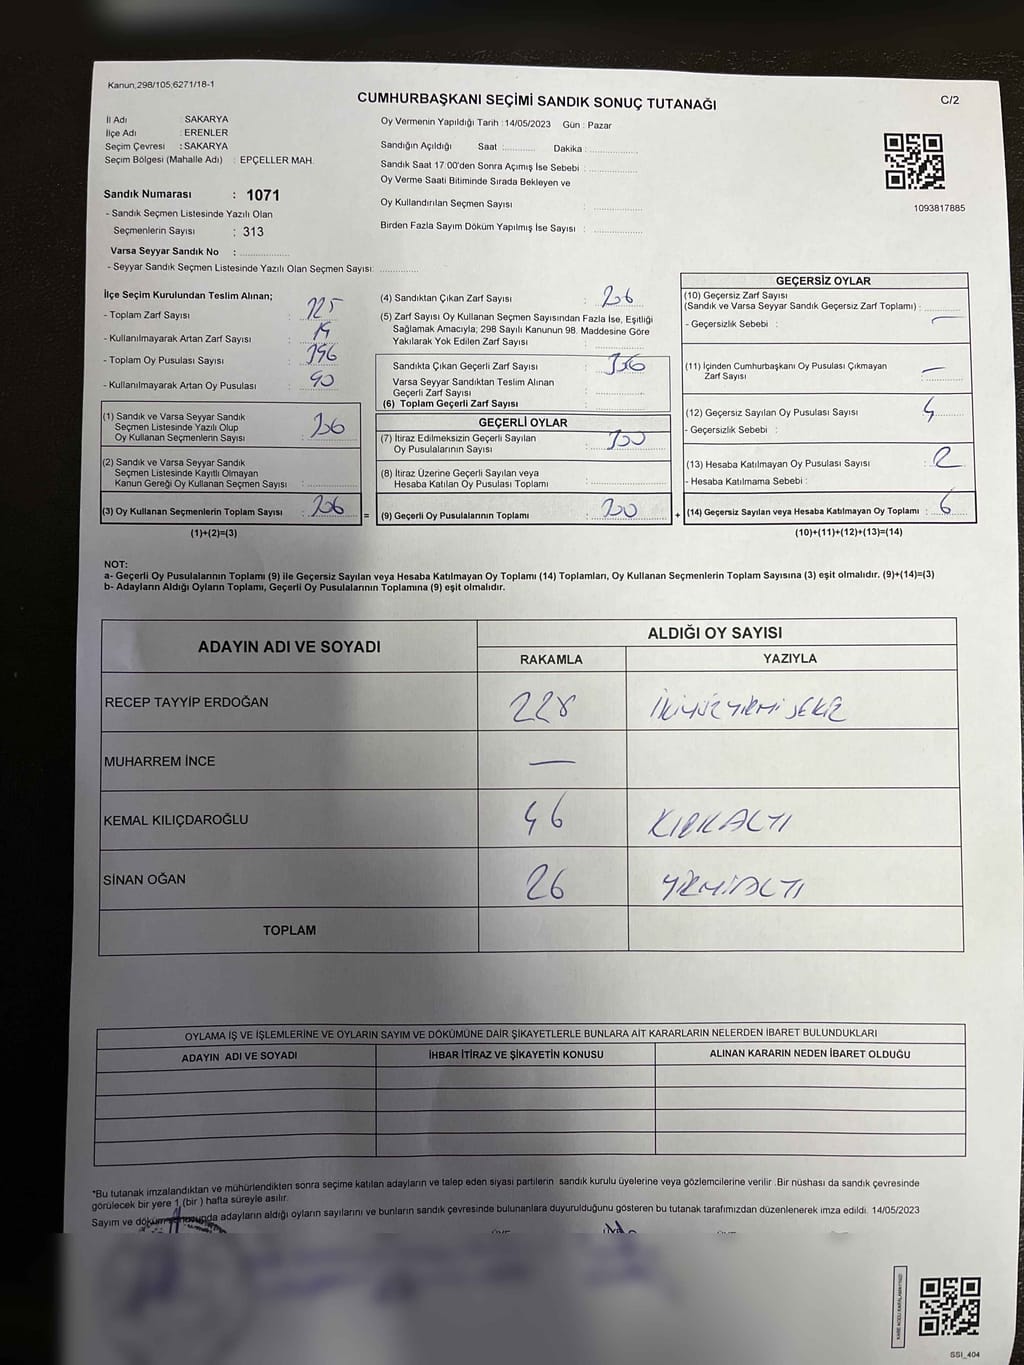 Kanun;298/105;6271/18-1
CUMHURBAŞKANI SEÇİMİ SANDIK SONUÇ TUTANAĞI
C/2
İl Adı : SAKARYA
İlçe Adı : ERENLER
Seçim Çevresi : SAKARYA
Seçim Bölgesi (Mahalle Adı) : EPÇELLER MAH.
Oy Vermenin Yapıldığı Tarih :14/05/2023 Gün : Pazar
Sandığın Açıldığı Saat :........... Dakika :................
Sandık Saat 17:00'den Sonra Açılmış İse Sebebi :................
Oy Verme Saati Bitiminde Sırada Bekleyen ve
Oy Kullandırılan Seçmen Sayısı : ................
Birden Fazla Sayım Döküm Yapılmış İse Sayısı : ................
1093817885
Sandık Numarası : 1071
- Sandık Seçmen Listesinde Yazılı Olan
Seçmenlerin Sayısı : 313
Varsa Seyyar Sandık No : ................
- Seyyar Sandık Seçmen Listesinde Yazılı Olan Seçmen Sayısı: ............
İlçe Seçim Kurulundan Teslim Alınan;
- Toplam Zarf Sayısı : 325
- Kullanılmayarak Artan Zarf Sayısı : 19
- Toplam Oy Pusulası Sayısı : 396
- Kullanılmayarak Artan Oy Pusulası : 90
(1) Sandık ve Varsa Seyyar Sandık
Seçmen Listesinde Yazılı Olup
Oy Kullanan Seçmenlerin Sayısı : 306
(2) Sandık ve Varsa Seyyar Sandık
Seçmen Listesinde Kayıtlı Olmayan
Kanun Gereği Oy Kullanan Seçmen Sayısı : ..............
(3) Oy Kullanan Seçmenlerin Toplam Sayısı : 306
(1)+(2)=(3)
(4) Sandıktan Çıkan Zarf Sayısı : 306
(5) Zarf Sayısı Oy Kullanan Seçmen Sayısından Fazla İse, Eşitliği
Sağlamak Amacıyla; 298 Sayılı Kanunun 98. Maddesine Göre
Yakılarak Yok Edilen Zarf Sayısı : ..............
Sandıkta Çıkan Geçerli Zarf Sayısı : 306
Varsa Seyyar Sandıktan Teslim Alınan
Geçerli Zarf Sayısı : ..............
(6) Toplam Geçerli Zarf Sayısı : ..............
GEÇERLİ OYLAR
(7) İtiraz Edilmeksizin Geçerli Sayılan
Oy Pusulalarının Sayısı : 300
(8) İtiraz Üzerine Geçerli Sayılan veya
Hesaba Katılan Oy Pusulası Toplamı : ..............
= (9) Geçerli Oy Pusulalarının Toplamı : 300
GEÇERSİZ OYLAR
(10) Geçersiz Zarf Sayısı
(Sandık ve Varsa Seyyar Sandık Geçersiz Zarf Toplamı) : ..........
- Geçersizlik Sebebi : —
(11) İçinden Cumhurbaşkanı Oy Pusulası Çıkmayan
Zarf Sayısı : —
(12) Geçersiz Sayılan Oy Pusulası Sayısı : 4
- Geçersizlik Sebebi :
(13) Hesaba Katılmayan Oy Pusulası Sayısı : 2
- Hesaba Katılmama Sebebi :
+ (14) Geçersiz Sayılan veya Hesaba Katılmayan Oy Toplamı : 6
(10)+(11)+(12)+(13)=(14)
NOT:
a- Geçerli Oy Pusulalarının Toplamı (9) ile Geçersiz Sayılan veya Hesaba Katılmayan Oy Toplamı (14) Toplamları, Oy Kullanan Seçmenlerin Toplam Sayısına (3) eşit olmalıdır. (9)+(14)=(3)
b- Adayların Aldığı Oyların Toplamı, Geçerli Oy Pusulalarının Toplamına (9) eşit olmalıdır.
ADAYIN ADI VE SOYADI
ALDIĞI OY SAYISI
RAKAMLA YAZIYLA
RECEP TAYYİP ERDOĞAN 228 İKİYÜZYİRMİSEKİZ
MUHARREM İNCE —
KEMAL KILIÇDAROĞLU 46 KIRKALTI
SİNAN OĞAN 26 YİRMİALTI
TOPLAM
OYLAMA İŞ VE İŞLEMLERİNE VE OYLARIN SAYIM VE DÖKÜMÜNE DAİR ŞİKAYETLERLE BUNLARA AİT KARARLARIN NELERDEN İBARET BULUNDUKLARI
ADAYIN ADI VE SOYADI İHBAR İTİRAZ VE ŞİKAYETİN KONUSU ALINAN KARARIN NEDEN İBARET OLDUĞU
*Bu tutanak imzalandıktan ve mühürlendikten sonra seçime katılan adayların ve talep eden siyasi partilerin sandık kurulu üyelerine veya gözlemcilerine verilir .Bir nüshası da sandık çevresinde
görülecek bir yere 1 (bir ) hafta süreyle asılır.
Sayım ve döküm sonunda adayların aldığı oyların sayılarını ve bunların sandık çevresinde bulunanlara duyurulduğunu gösteren bu tutanak tarafımızdan düzenlenerek imza edildi. 14/05/2023
SSI_404